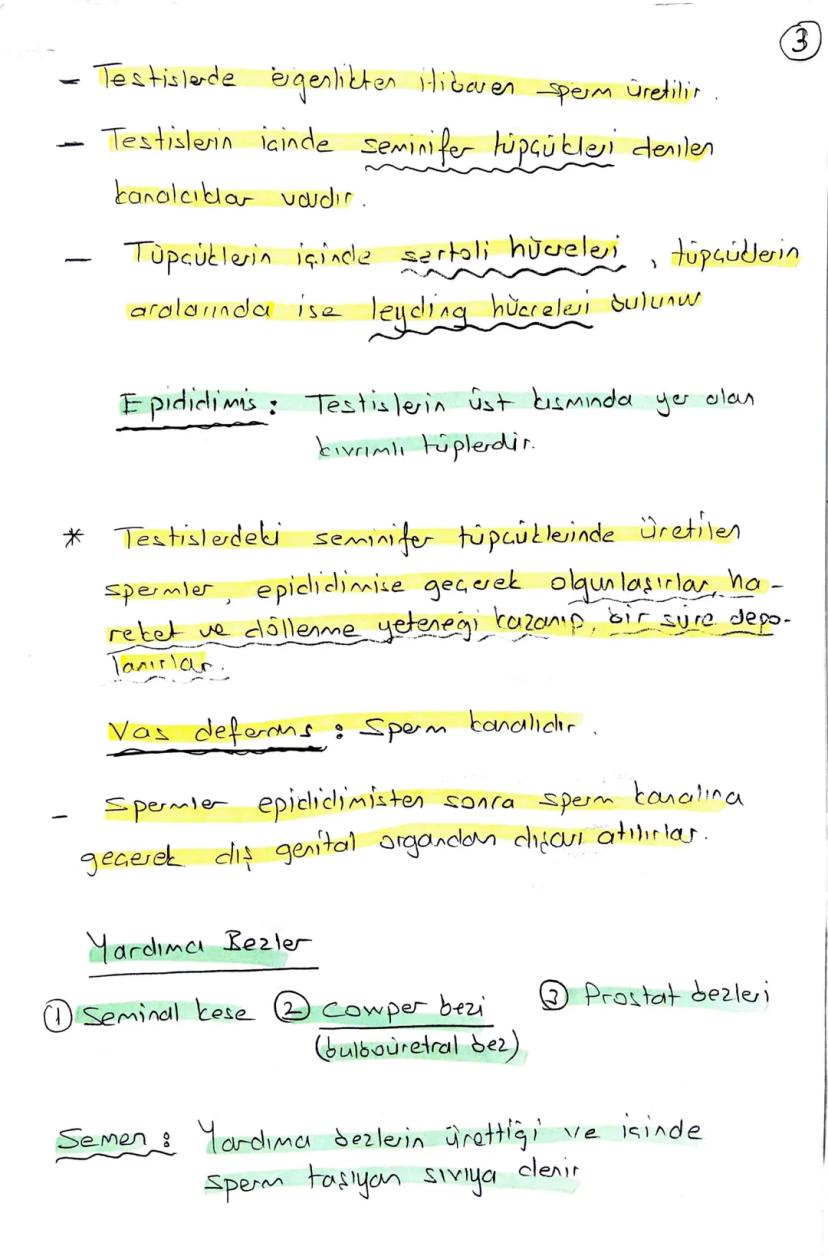 3
- Testislerde ergenlikten itibaren sperm üretilir.
- Testislerin içinde seminifer tüpçükleri denilen
kanalcıklar vardır.
- Tüpçüklerin içinde sertoli hücreleri, tüpçüklerin
aralarında ise leyding hücreleri bulunur
Epididimis: Testislerin üst kısmında yer alan
kıvrımlı tüplerdir.
* Testislerdeki seminifer tüpçüklerinde üretilen
spermler, epididimise geçerek olgunlaşırlar, ha-
reket ve döllenme yeteneği kazanıp, bir süre depo-
lanırlar.
Vas deferans: Sperm kanalıdır.
- Spermler epididimisten sonra sperm kanalına
geçerek dış genital organdan dışarı atılırlar.
Yardımcı Bezler
① Seminal kese ② Cowper bezi ③ Prostat bezleri
(bulboüretral bez)
Semen: Yardımcı bezlerin ürettiği ve içinde
sperm taşıyan sıvıya denir